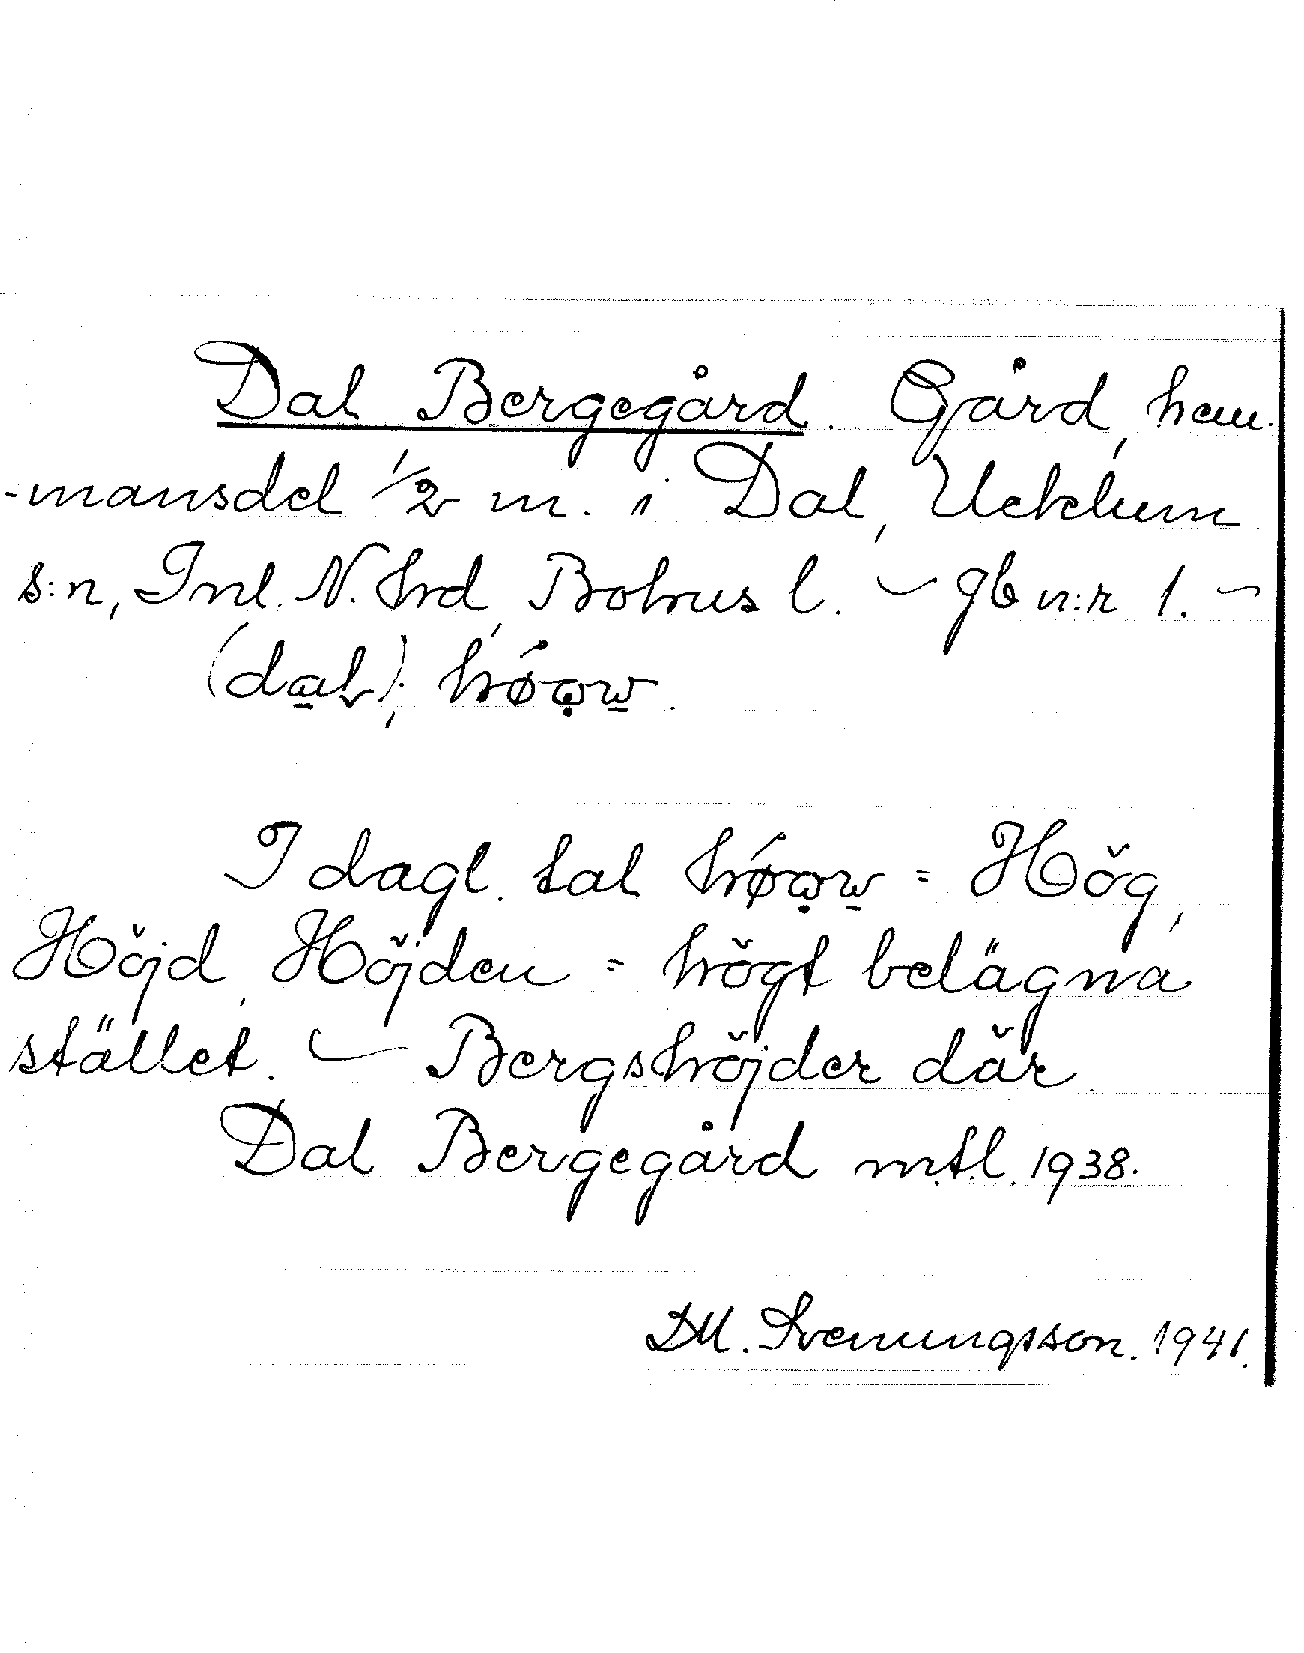 Dal Bergegård. Gård, hem-
-mansdel 1/2 m. i Dal, Ucklum
s:n, Inl. N. hrd, Bohus l. – gb n:r 1. –
(dal);
I dagl. tal = Hög,
Höjd, Höjden = högt belägna
stället. – Bergshöjder där.
Dal Bergegård mtl. 1938.
DM. Svenungsson. 1941.